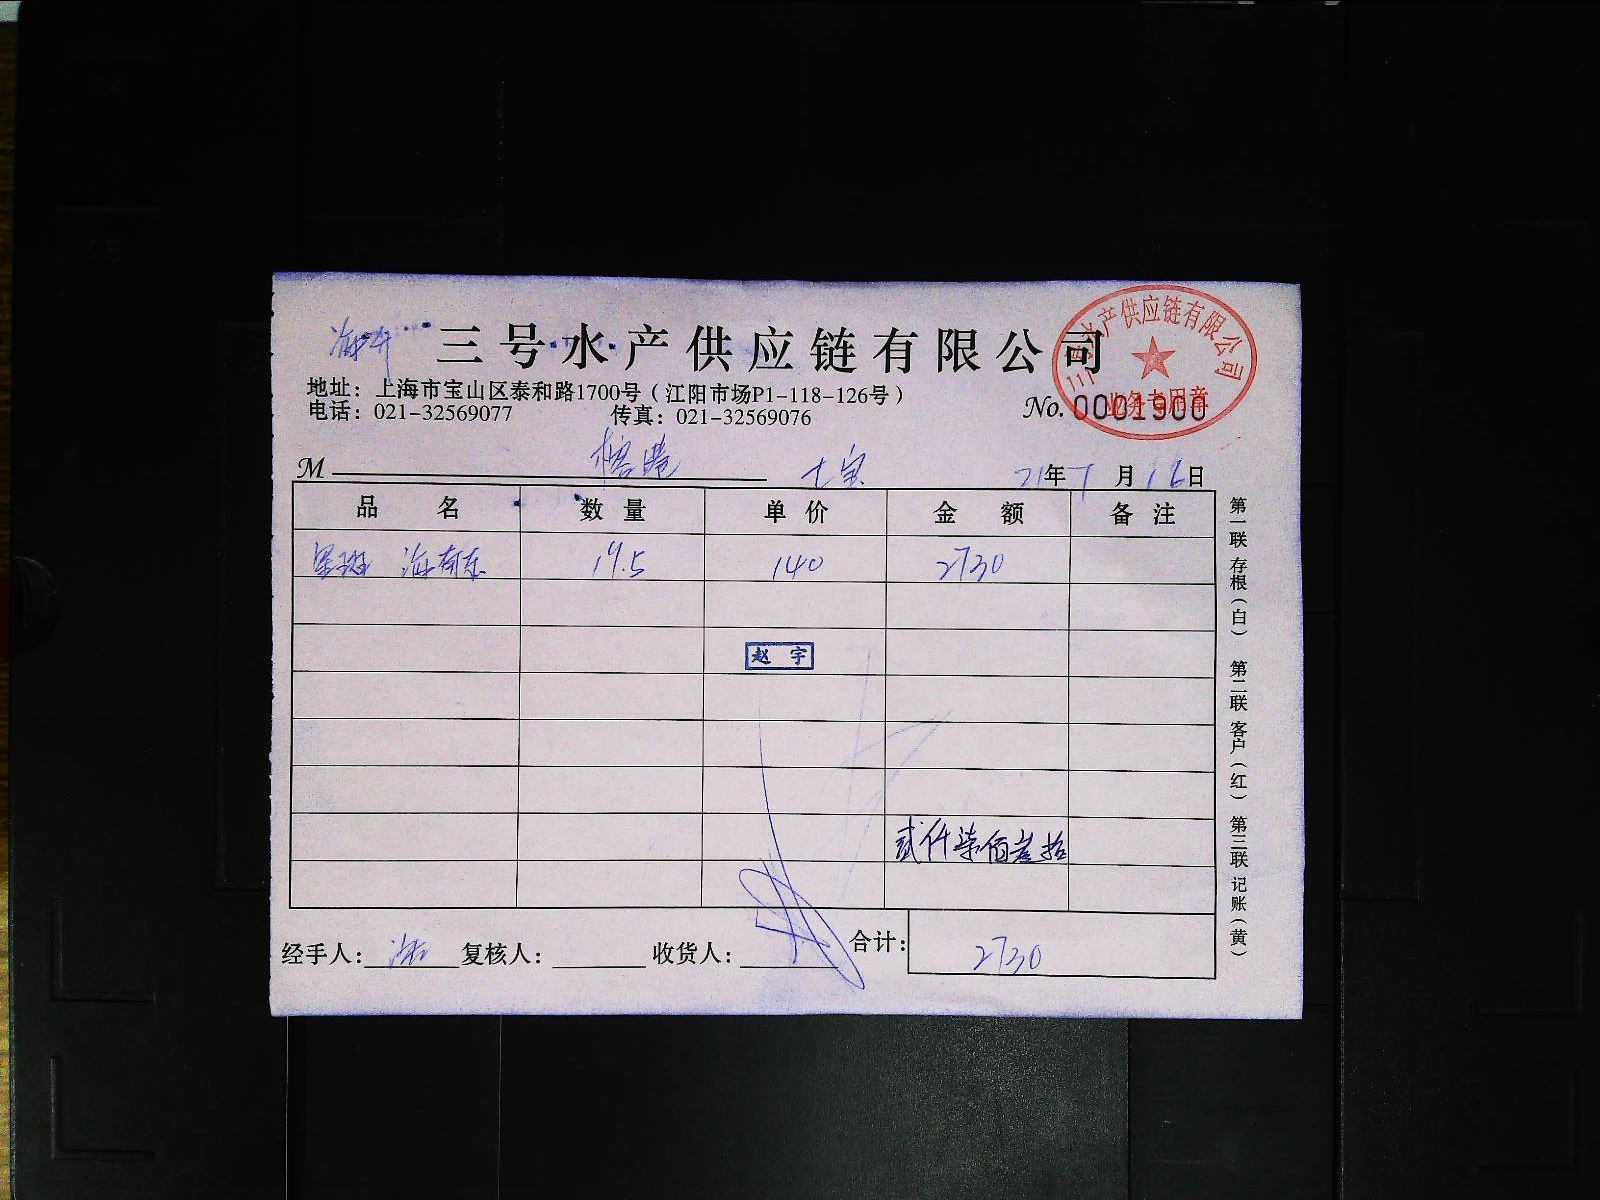 海鲜
三号水产供应链有限公司
地址：上海市宝山区泰和路1700号（江阳市场P1-118-126号）
电话：021-32569077 传真：021-32569076
No. 0001900
三号水产供应链有限公司
业务专用章
M 榕港 七宝 21年7月16日
品名 数量 单价 金额 备注
星斑 海南东 19.5 140 2730
赵宇
贰仟柒佰叁拾
经手人： 复核人： 收货人： 合计：2730
第一联 存根（白） 第二联 客户（红） 第三联 记账（黄）